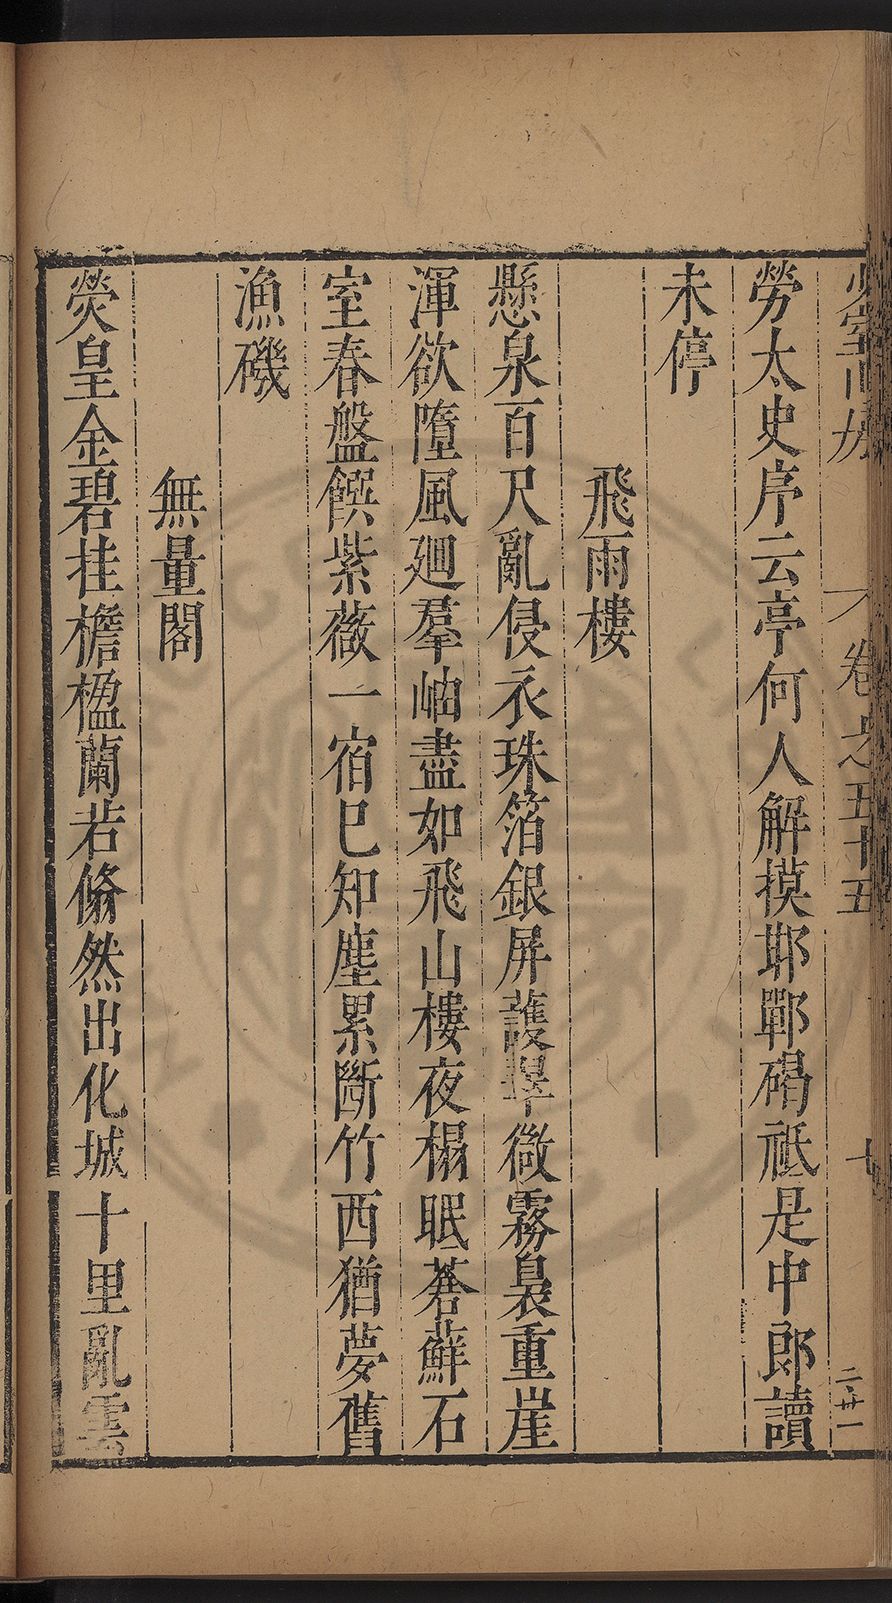 卷之五十五
七
二卅一
勞太史序云亭何人解摸邯鄲碣祗是中郎讀
未停
飛雨樓
懸泉百尺亂侵衣珠箔銀屏護翠微霧裊重崖
渾欲墮風廻羣岫盡如飛山樓夜榻眠蒼蘚石
室春盤饌紫薇一宿巳知塵累斷竹西猶夢舊
漁磯
無量閣
熒皇金碧挂檐楹蘭若翛然出化城十里亂雲